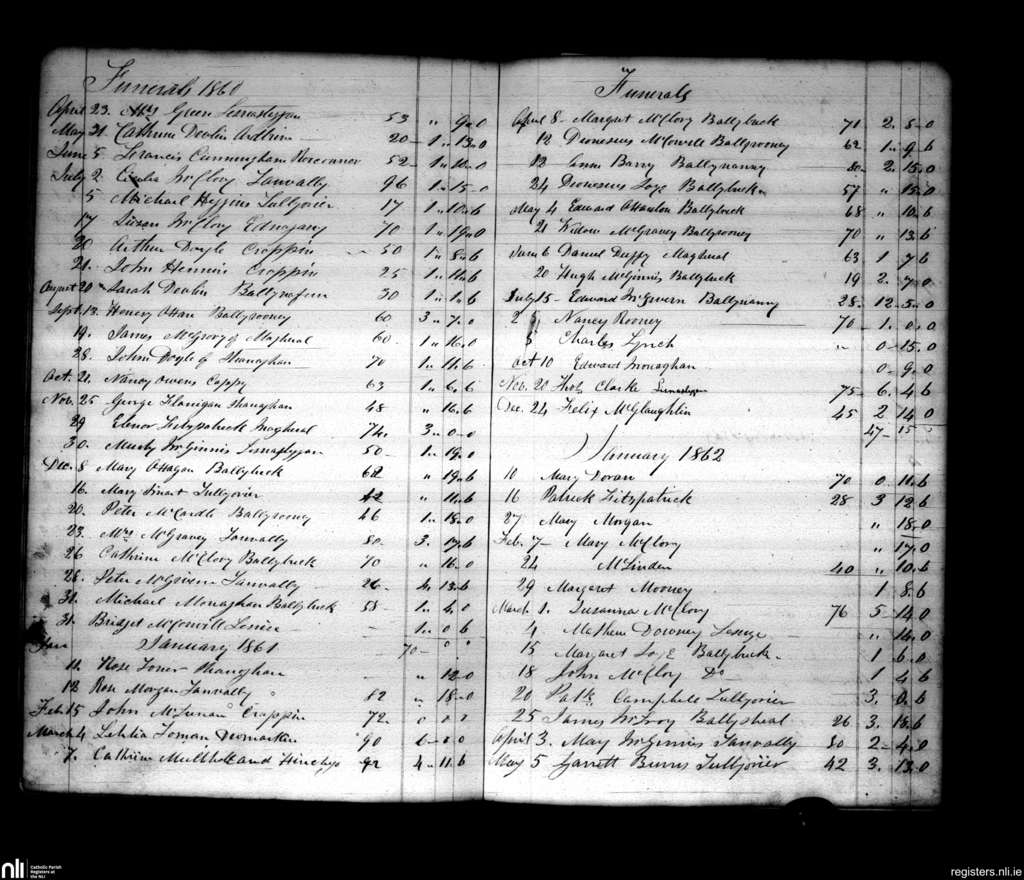 Funerals 1860
April 23. Mrs Green 53 " 9.. 0
May 21. Cathrine Devlin 20 – 1 .. 13.. 0
June 5 Francis Cunningham Rosconnor 52 – 1
July 2. Cecelia McClory Tanvally 96 1 .. 15 .. 0
5 Michael Higgins Tullyorier 17 1 .. 10 .. 6
17 Susan McClory Ednagany 70 1 .. 19.. 0
20 Arthur Doyle Croppin 50 1 .. 8 .. 6
21. John Croppin 25 1 .. 11.. 6
August 20 Sarah Devlin 30 1 .. 1.. 6
Sept. 13. Henery Ohan Ballyrooney 60 3 .. 7 .. 0
19. James McGrory of Magheral 60 1 .. 16.. 0
28. John Doyle of Shanaghan 70 1 .. 11.. 6
Oct. 21. Nancy Owens Cappy 63 1 .. 6 .. 6
Nov. 25 George Flanigan Shanaghan 48 " 16 .. 6
29 Elenor Fitzpatrick Magheral 74. 3 .. 0 .. 0
30. McGinnis 50 1 .. 19.. 0
Dec. 8 Mary OHagan Ballybuck " 19.. 6
16. Mary Smart Tullyorier 42 " 11.. 6
20. Peter McCardle Ballyrooney 46 1 .. 18.. 0
23. Mrs McGravey Tanvally 80 3. 17.. 6
26 Cathrine McClory Ballybuck 70 " 16.. 0
28. Peter McGivern Tanvally 26 4. 13.. 6
31. Michael Monaghan Ballybuck 58 1 .. 4.. 0
31. Bridget McConvill 1 .. 0 6
Jan January 1861 70 –
11. Rose Toner Shanaghan " 12.. 0
12 Rose Morgan Tanvally 82 " 18.. 0
Feb. 15 John Croppin 72
March 4 Toman 90
7. Cathrine Mulholland 92 4 .. 11.. 6
Funerals
April 8 – Margret McClory Ballybuck 71 2. 8 – 0
12 Dionesius McConvill Ballyrooney 62 1 .. 9 .. 6
12 Ann Barry Ballynanny 80 2. 15.. 0
24 Dionesius Loye Ballybuck 57 " 15.. 0
May 4 Edward OHanlon Ballybuck 68 " 10 .. 6
21 Widow McGravey Ballyrooney 70 " 13.. 6
June 6 Daniel Duffy Magheral 63 1 7 6
20 Hugh McGinnis Ballybuck 19 2. 7.. 0
July 15 – Edward McGivern Ballynanny 28 12 – 5 .. 0
Nancy Rooney 70 – 1. 0 .. 0
Charles Lynch " 0 – 15.. 0
Oct 10 Edward Monaghan 0 – 9.. 0
Nov. 20 Thos Clarke 75 – 6. 4. 6
Dec. 24 Felix McGlaughlin 45 2 14 0
47 – 15
January 1862
10 Mary Doran 70 0 .. 11.. 6
16 Patrick Fitzpatrick 28 3 12 .. 6
27 Mary Morgan " 18.. 0
Feb. 7 – Mary McClory " 17.. 0
24 McLinden 40 " 10 .. 6
29 Margaret Mooney 1 8.. 6
March 1. Susanna McClory 76 5 – 14.. 0
4 Mathew Downey " 16.. 0
15 Margaret Loye Ballybuck 1 6.. 0
18 John McCloy Do 1 4 6
20 Patk Campbell Tullyorier 3.
25 James McIvoy 26 3. 18.. 6
April 3. May McGinnis Tanvally 50 2 – 4.. 0
May 5 Garrett Burns Tullyorier 42 3. 13.. 0
nli Catholic Parish Registers at the NLI
registers.nli.ie